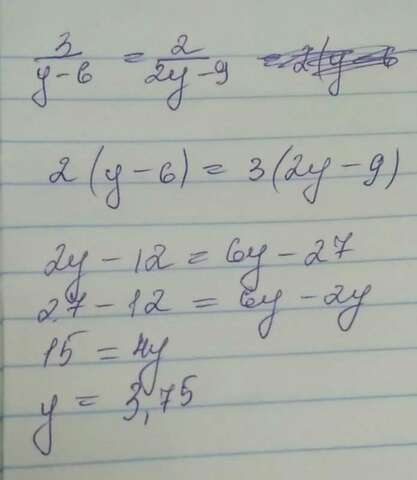 3/(y-6) = 2/(2y-9)
2(y-6) = 3(2y-9)
2y-12 = 6y-27
27-12 = 6y-2y
15 = 4y
y = 3,75